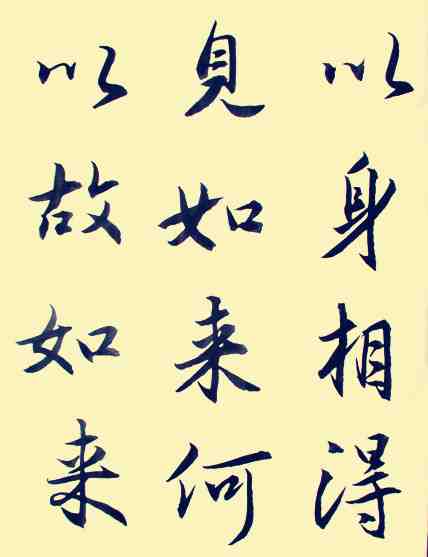 以身相得
見如来何
以故如来